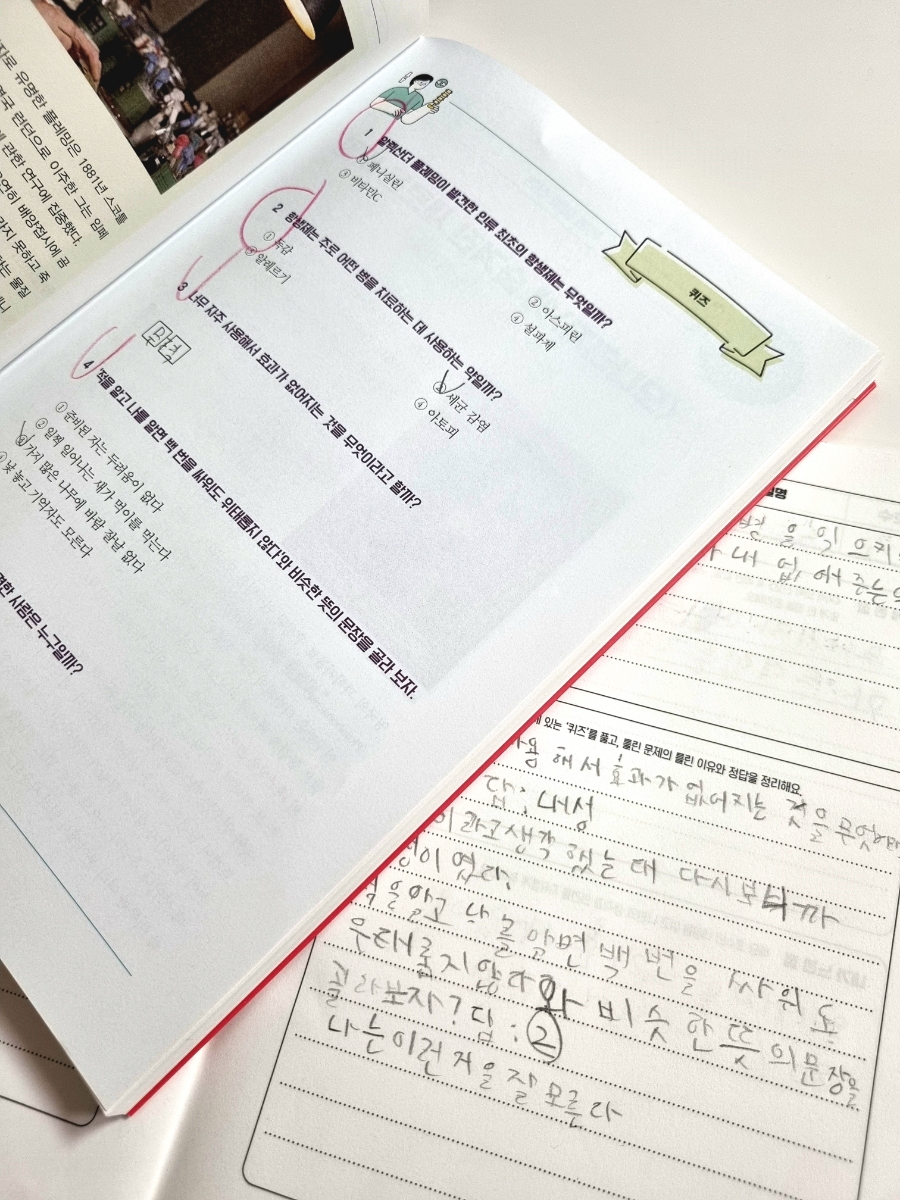 자로 유명한 플레밍은 1881년 스코틀
영국 런던으로 이주한 그는 임페
관한 연구에 집중했다.
우연히 배양접시에 곰
가지 못하고 죽
라는 물질
퀴즈
1 알렉산더 플레밍이 발견한 인류 최초의 항생제는 무엇일까?
① 페니실린 ② 아스피린
③ 비타민C ④ 설파제
2 항생제는 주로 어떤 병을 치료하는 데 사용하는 약일까?
① 독감 ② 세균 감염
③ 알레르기 ④ 아토피
3 너무 자주 사용해서 효과가 없어지는 것을 무엇이라고 할까?
4 '적을 알고 나를 알면 백 번을 싸워도 위태롭지 않다'와 비슷한 뜻의 문장을 골라 보자.
① 준비된 자는 두려움이 없다
② 일찍 일어나는 새가 먹이를 먹는다
③ 가지 많은 나무에 바람 잘날 없다
④ 낫 놓고 기역자도 모른다
사람은 누구일까?
을 일으키
없애 주는
있는 '퀴즈'를 풀고, 틀린 문제의 틀린 이유와 정답을 정리해요.
해서 효과가 없어지는 것을 무엇이라
답: 내성
이라고 생각 했는데 다시보니까
이였다.
적을알고 나를 알면 백 번을 싸워도
우태롭지않다와 비슷한 뜻의문장을
골라보자? 답: ②
나는이런거을잘모른다